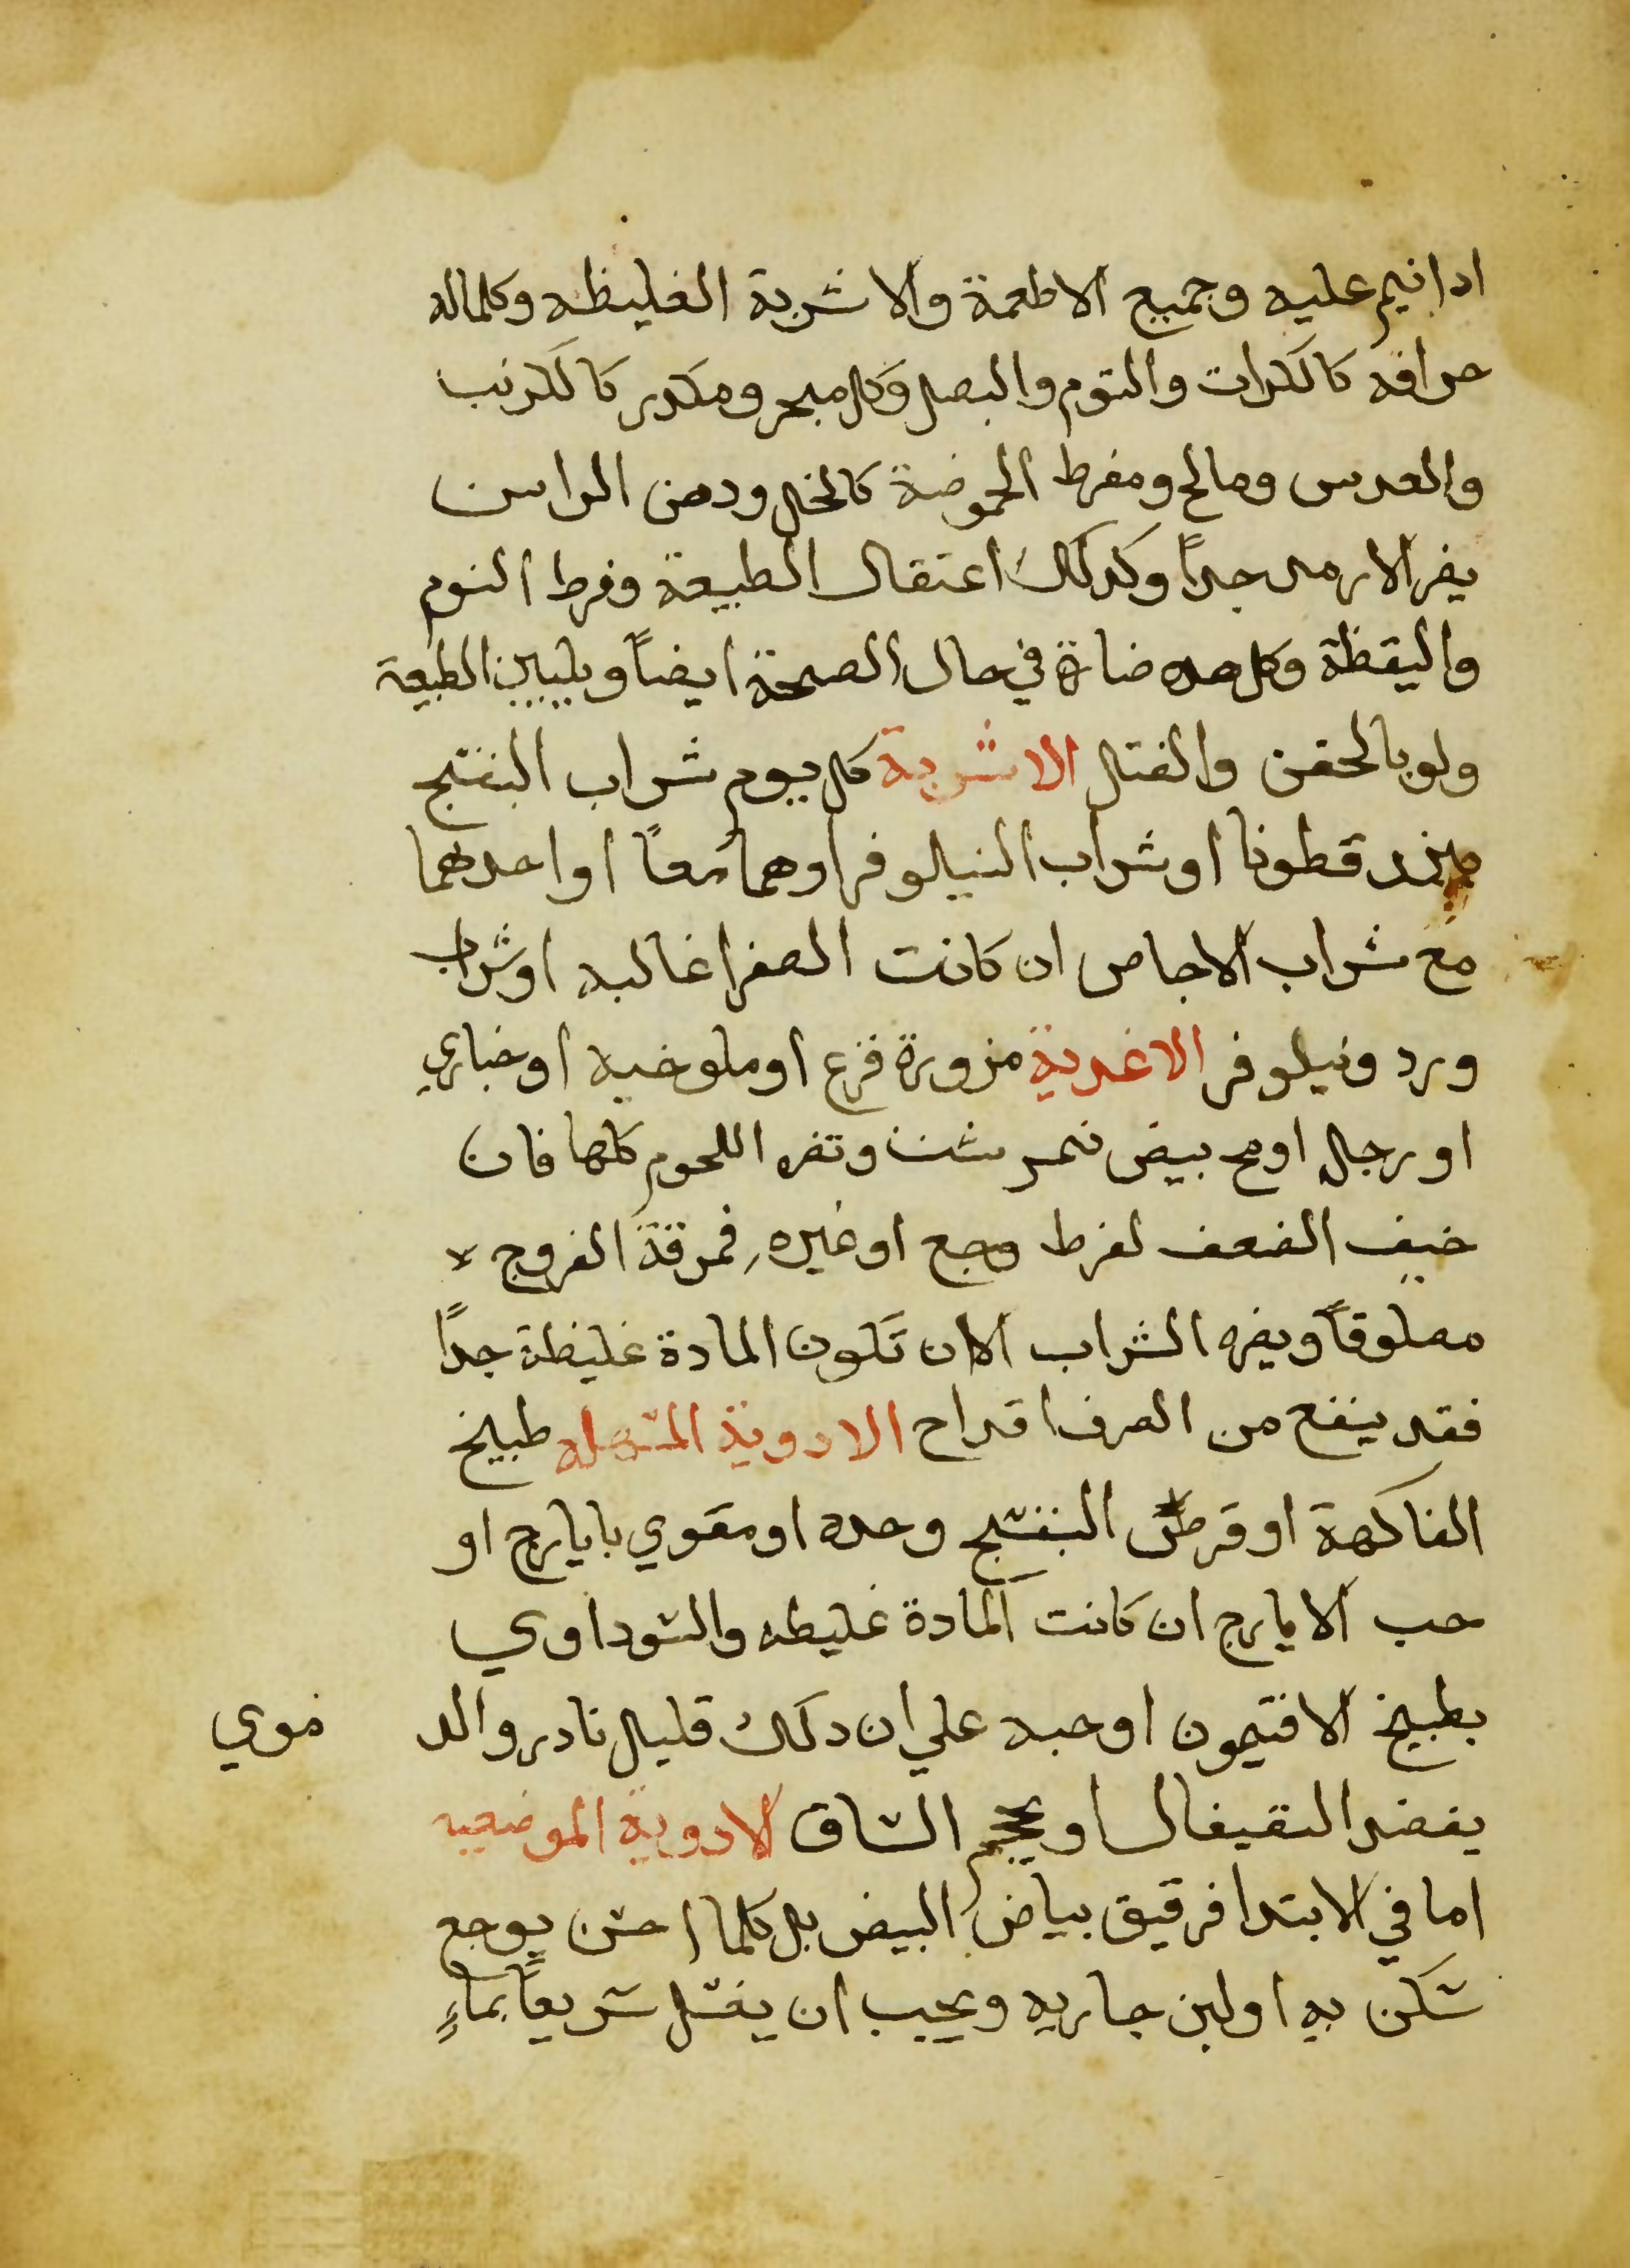 ادا نيم عليه وجميع الاطعمة والاشربة الغليظه وكلماله
حرافه كالكرات والتوم والبصل وكل مبخر ومكدر كالكرنب
والعدس ومالح ومفرط الحموضة كالخل ودهن الراس
يضر الارمد جداً وكدلك اعتقال الطبيعة وفرط النوم
واليقظة وكل هده ضارة في حال الصحة ايضاً ويليين الطبيعة
ولو بالحقن والفتل الاشربة كل يوم شراب البنفسج
ببزر قطونا او شراب النيلوفر او هما معاً او احدهما
مع شراب الاجاص ان كانت الصفرا غالبه او شراب
ورد ونيلوفر الاغدية مزورة قرع او ملوخيه او خبازي
او رجله او مح بيض نمرشت وتضره اللحوم كلها فان
خيف الضعف لفرط وجع او غيره فمرقة الفروج لا
مصلوقاً ويضره الشراب الا ان تكون المادة غليظة جداً
فقد ينفع من الصرف اقداح الادوية المسهله طبيخ
الفاكهة او قرص البنفسج وحده او مقوي بايارج او
حب الايارج ان كانت المادة غليظه والسوداوي
بطبيخ الافتيمون او حبه علي ان دلك قليل نادر والد موي
يفصد القيفال او يحجم الساق الادوية الموضعيه
اما في الابتدا فرقيق بياض البيض بل كلما احس بوجع
سكن به او لبن جاريه ويجب ان يغسل سريعاً بماءٍ